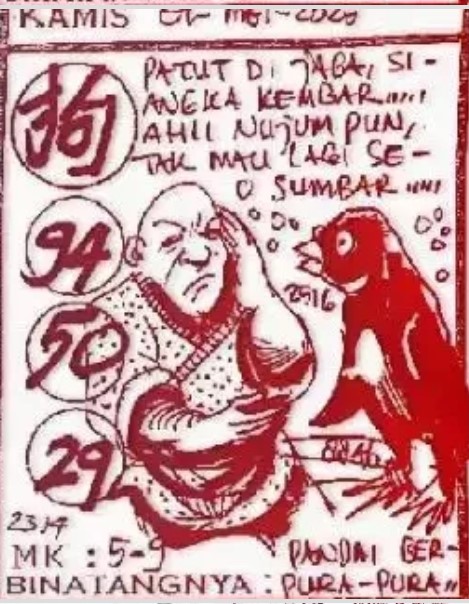 KAMIS
狗
PATUT DI JAGA, SI -
ANGKA KEMBAR.....
AHLI NUJUM PUN,
TAK MAU LAGI SE -
SUMBAR .....
94
50
29
2916
8846
MK : 5-9
PANDAI BER-
BINATANGNYA : PURA-PURA